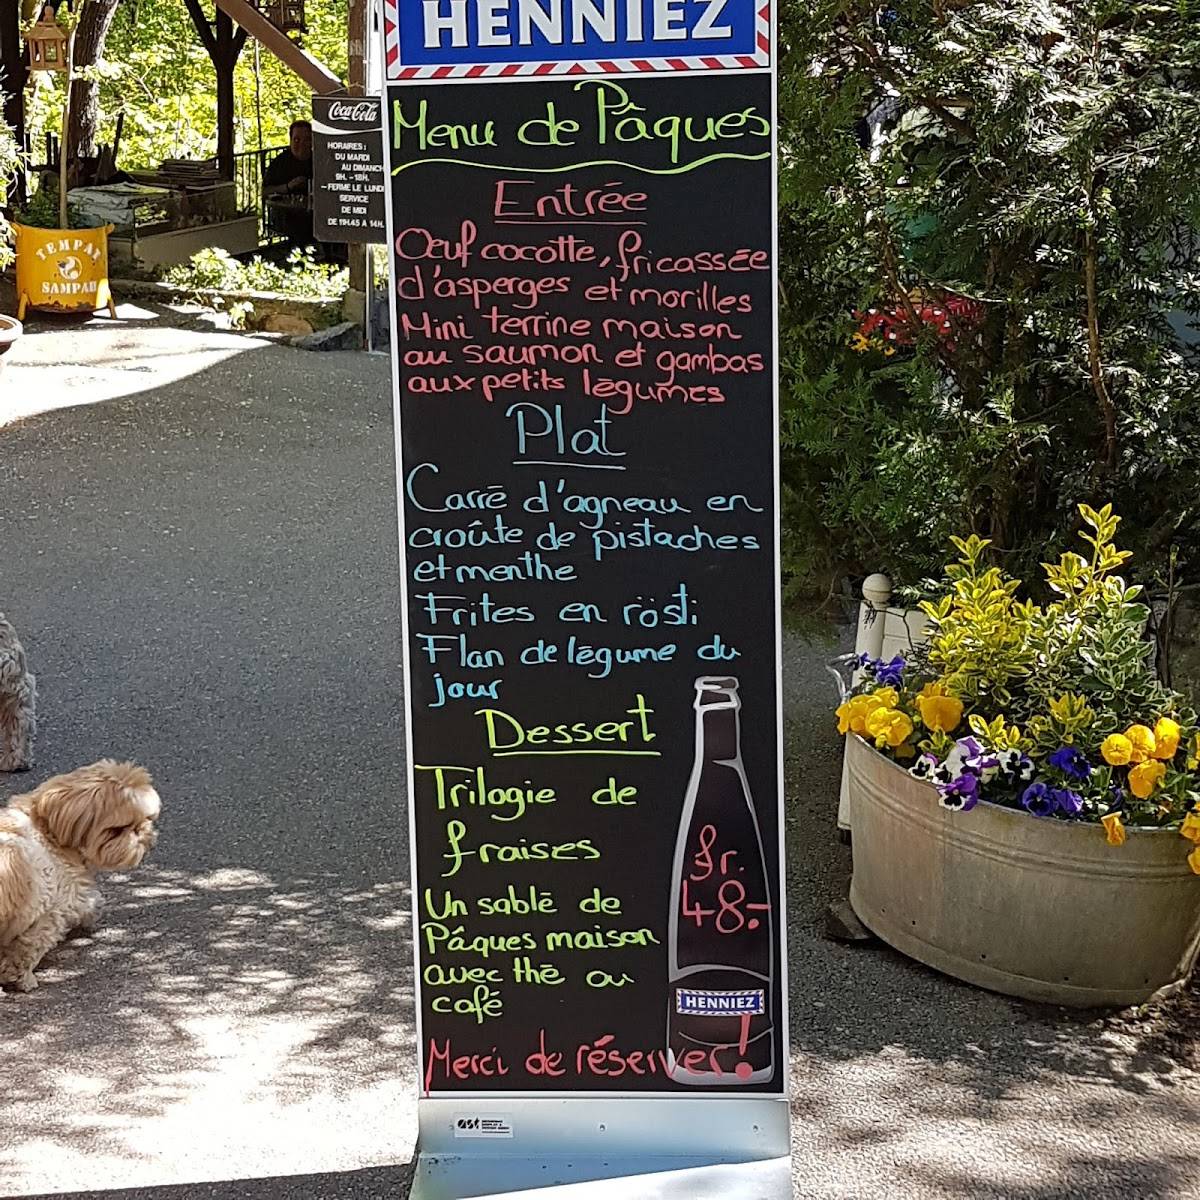 HENNIEZ
Menu de Pâques
Entrée
Œuf cocotte, fricassée
d'asperges et morilles
Mini terrine maison
au saumon et gambas
aux petits légumes
Plat
Carré d'agneau en
croûte de pistaches
et menthe
Frites en rösti
Flan de légume du
jour
Dessert
Trilogie de
fraises
Un sablé de
Pâques maison
avec thé ou
café
fr.
48.-
HENNIEZ
Merci de réserver!
ast
Coca-Cola
HORAIRES :
DU MARDI
AU DIMANCH
9H. - 18H.
- FERME LE LUNDI
SERVICE
DE MIDI
DE 11H.45 A 14H.
TEMPAT
SAMPAH